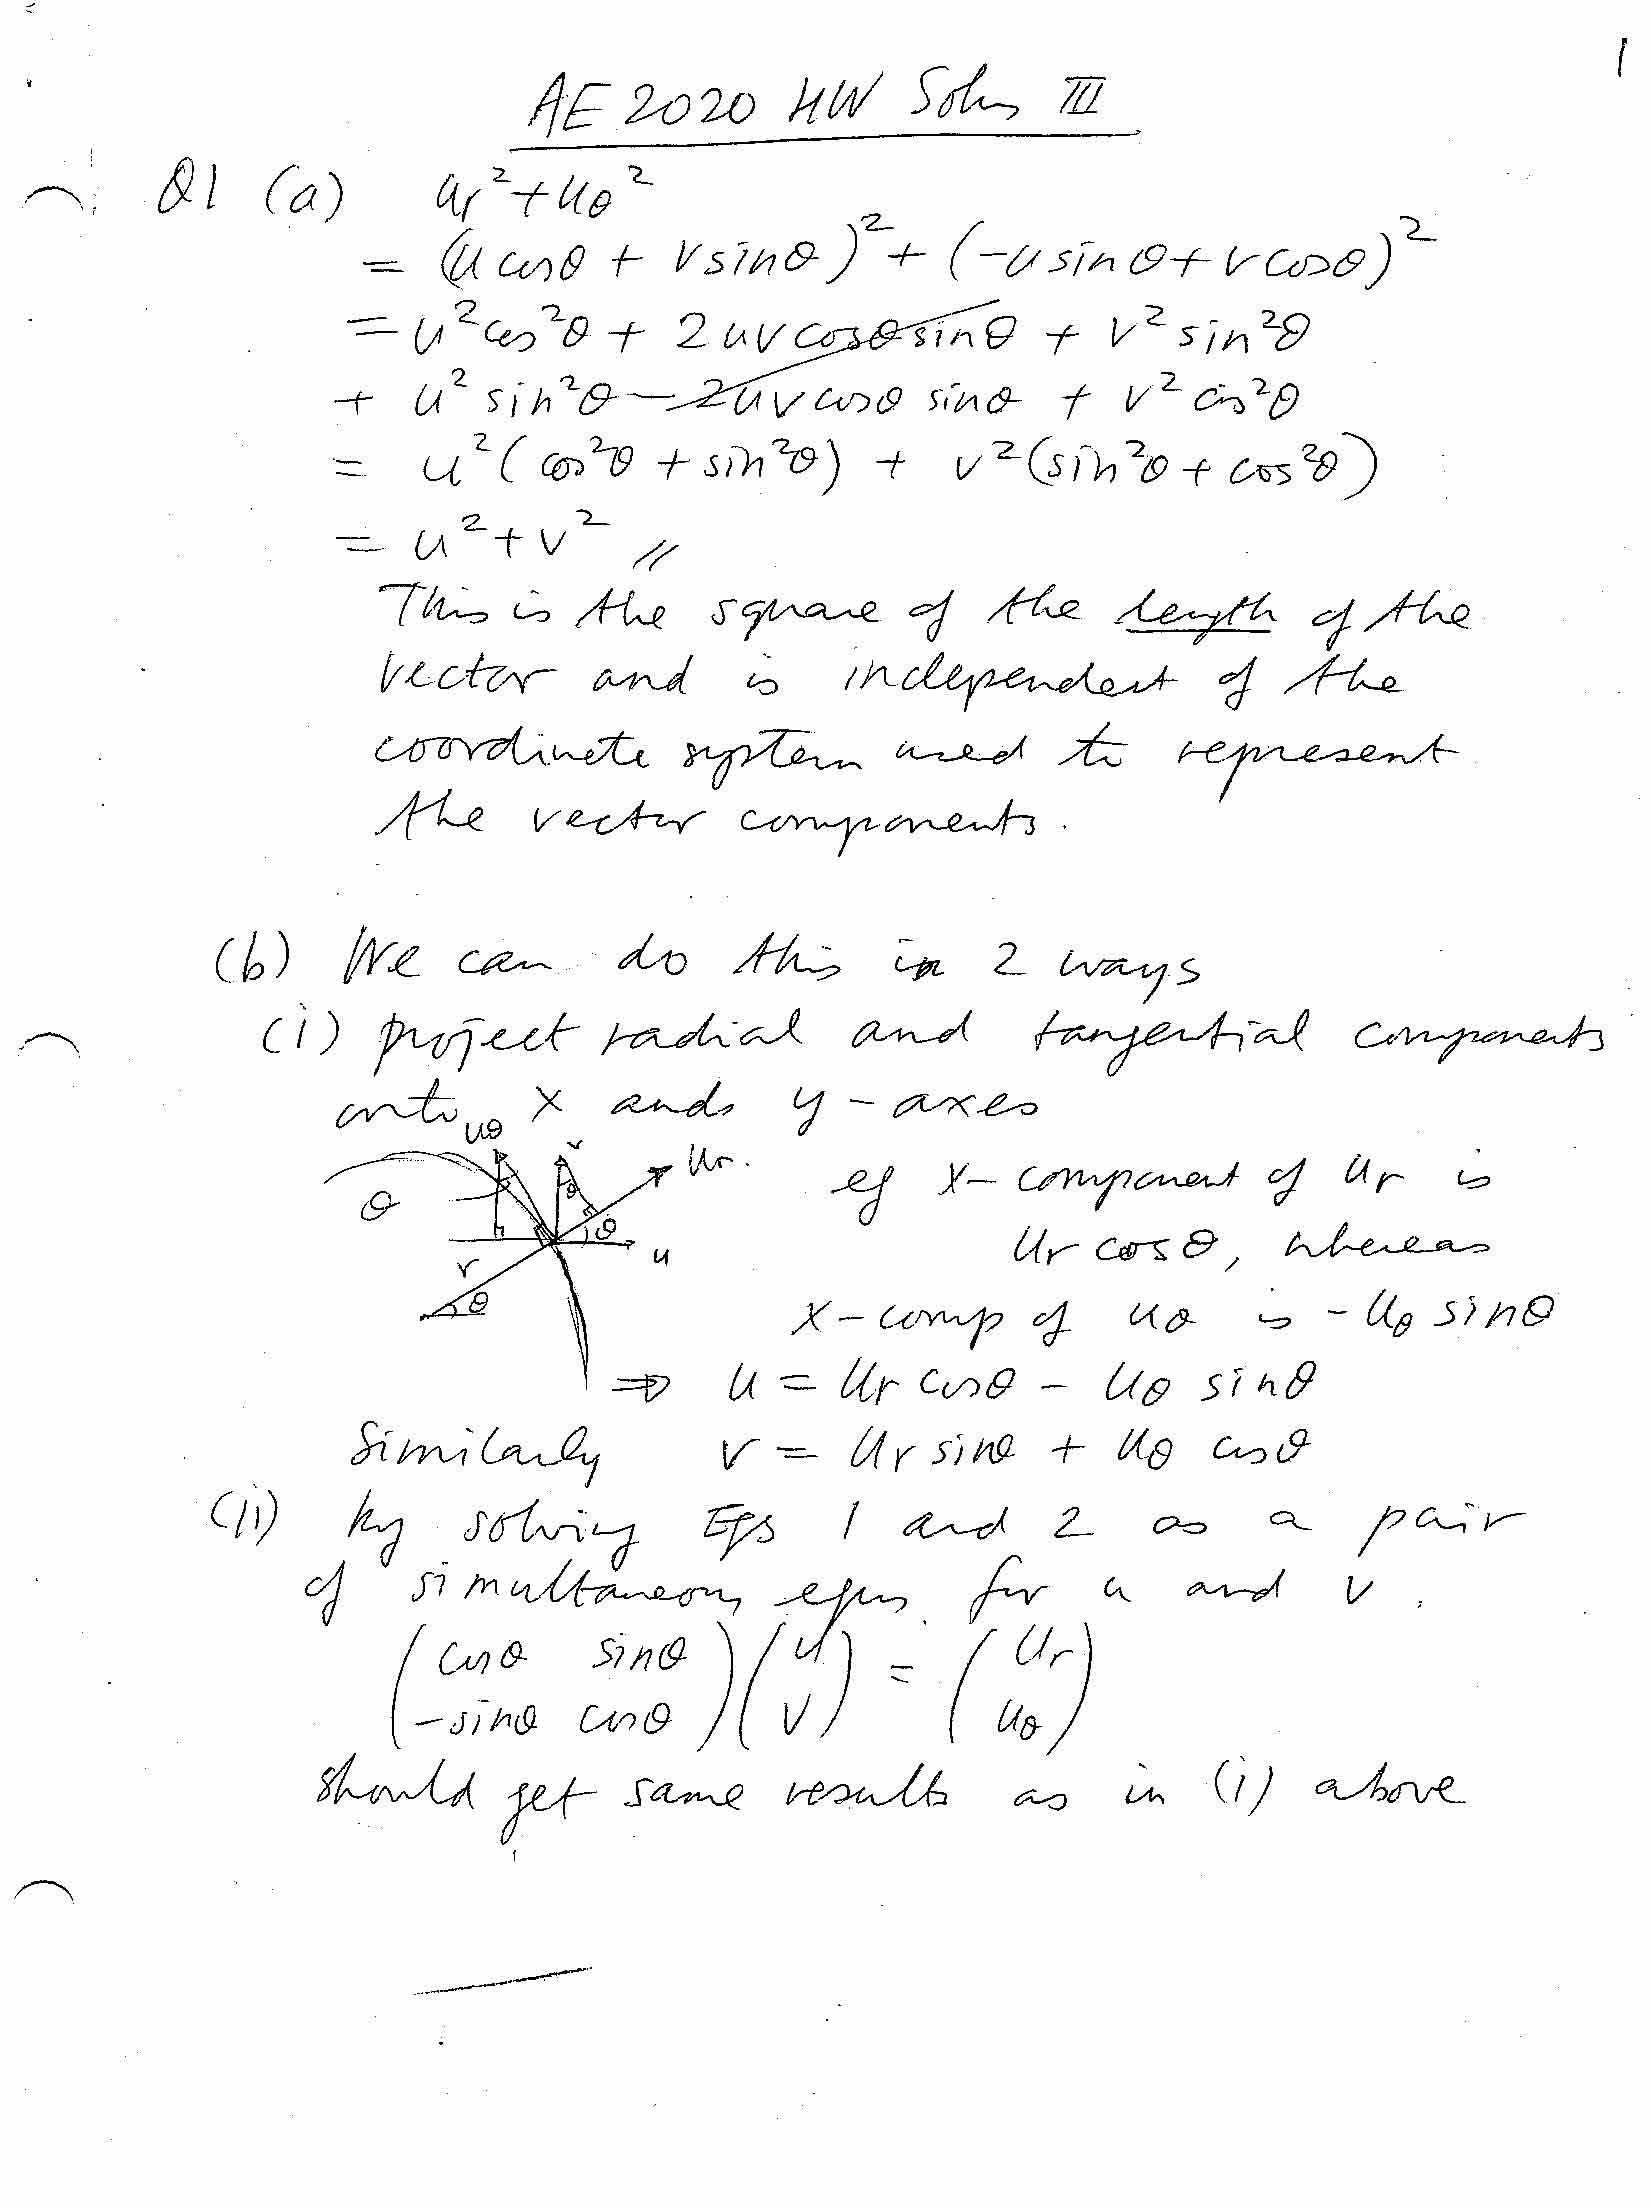 1
AE 2020 HW Solns III
Q1 (a) u_r² + u_θ²
= (u cosθ + v sinθ)² + (-u sinθ + v cosθ)²
= u² cos²θ + 2uv cosθ sinθ + v² sin²θ
+ u² sin²θ - 2uv cosθ sinθ + v² cos²θ
= u² (cos²θ + sin²θ) + v² (sin²θ + cos²θ)
= u² + v² //
This is the square of the length of the
vector and is independent of the
coordinate system used to represent
the vector components.
(b) We can do this in 2 ways
(i) project radial and tangential components
onto x and y-axes
u_θ v u_r.
θ θ θ u
r θ
eg x-component of u_r is
u_r cosθ, whereas
x-comp of u_θ is -u_θ sinθ
⇒ u = u_r cosθ - u_θ sinθ
Similarly v = u_r sinθ + u_θ cosθ
(ii) by solving Eqs 1 and 2 as a pair
of simultaneous eqns for u and v.
( cosθ sinθ ) ( u ) = ( u_r )
( -sinθ cosθ ) ( v ) ( u_θ )
should get same results as in (i) above